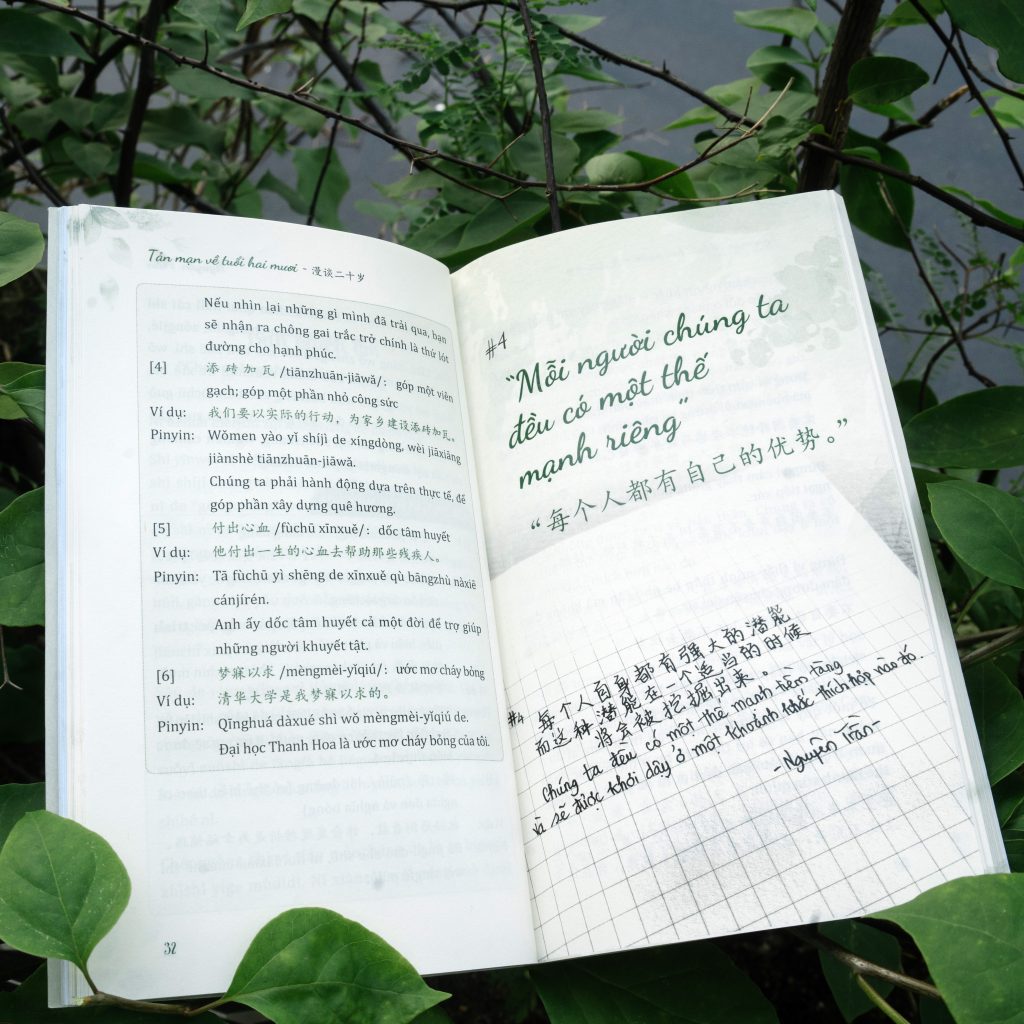 Tản mạn về tuổi hai mươi - 漫谈二十岁
Nếu nhìn lại những gì mình đã trải qua, bạn
sẽ nhận ra chông gai trắc trở chính là thứ lót
đường cho hạnh phúc.
[4] 添砖加瓦 /tiānzhuān-jiāwǎ/: góp một viên
gạch; góp một phần nhỏ công sức
Ví dụ: 我们要以实际的行动，为家乡建设添砖加瓦。
Pinyin: Wǒmen yào yǐ shíjì de xíngdòng, wèi jiāxiāng
jiànshè tiānzhuān-jiāwǎ.
Chúng ta phải hành động dựa trên thực tế, để
góp phần xây dựng quê hương.
[5] 付出心血 /fùchū xīnxuě/: dốc tâm huyết
Ví dụ: 他付出一生的心血去帮助那些残疾人。
Pinyin: Tā fùchū yì shēng de xīnxuě qù bāngzhù nàxiē
cánjírén.
Anh ấy dốc tâm huyết cả một đời để trợ giúp
những người khuyết tật.
[6] 梦寐以求 /mèngmèi-yǐqiú/: ước mơ cháy bỏng
Ví dụ: 清华大学是我梦寐以求的。
Pinyin: Qīnghuá dàxué shì wǒ mèngmèi-yǐqiú de.
Đại học Thanh Hoa là ước mơ cháy bỏng của tôi.
32
#4
“Mỗi người chúng ta
đều có một thế
mạnh riêng”
“每个人都有自己的优势。”
#4 每个人自身都有强大的潜能
而这种潜能在一个适当的时候
将会被挖掘出来。
Chúng ta đều có một thế mạnh tiềm tàng
và sẽ được khơi dậy ở một khoảnh khắc thích hợp nào đó.
- Nguyên Trần -